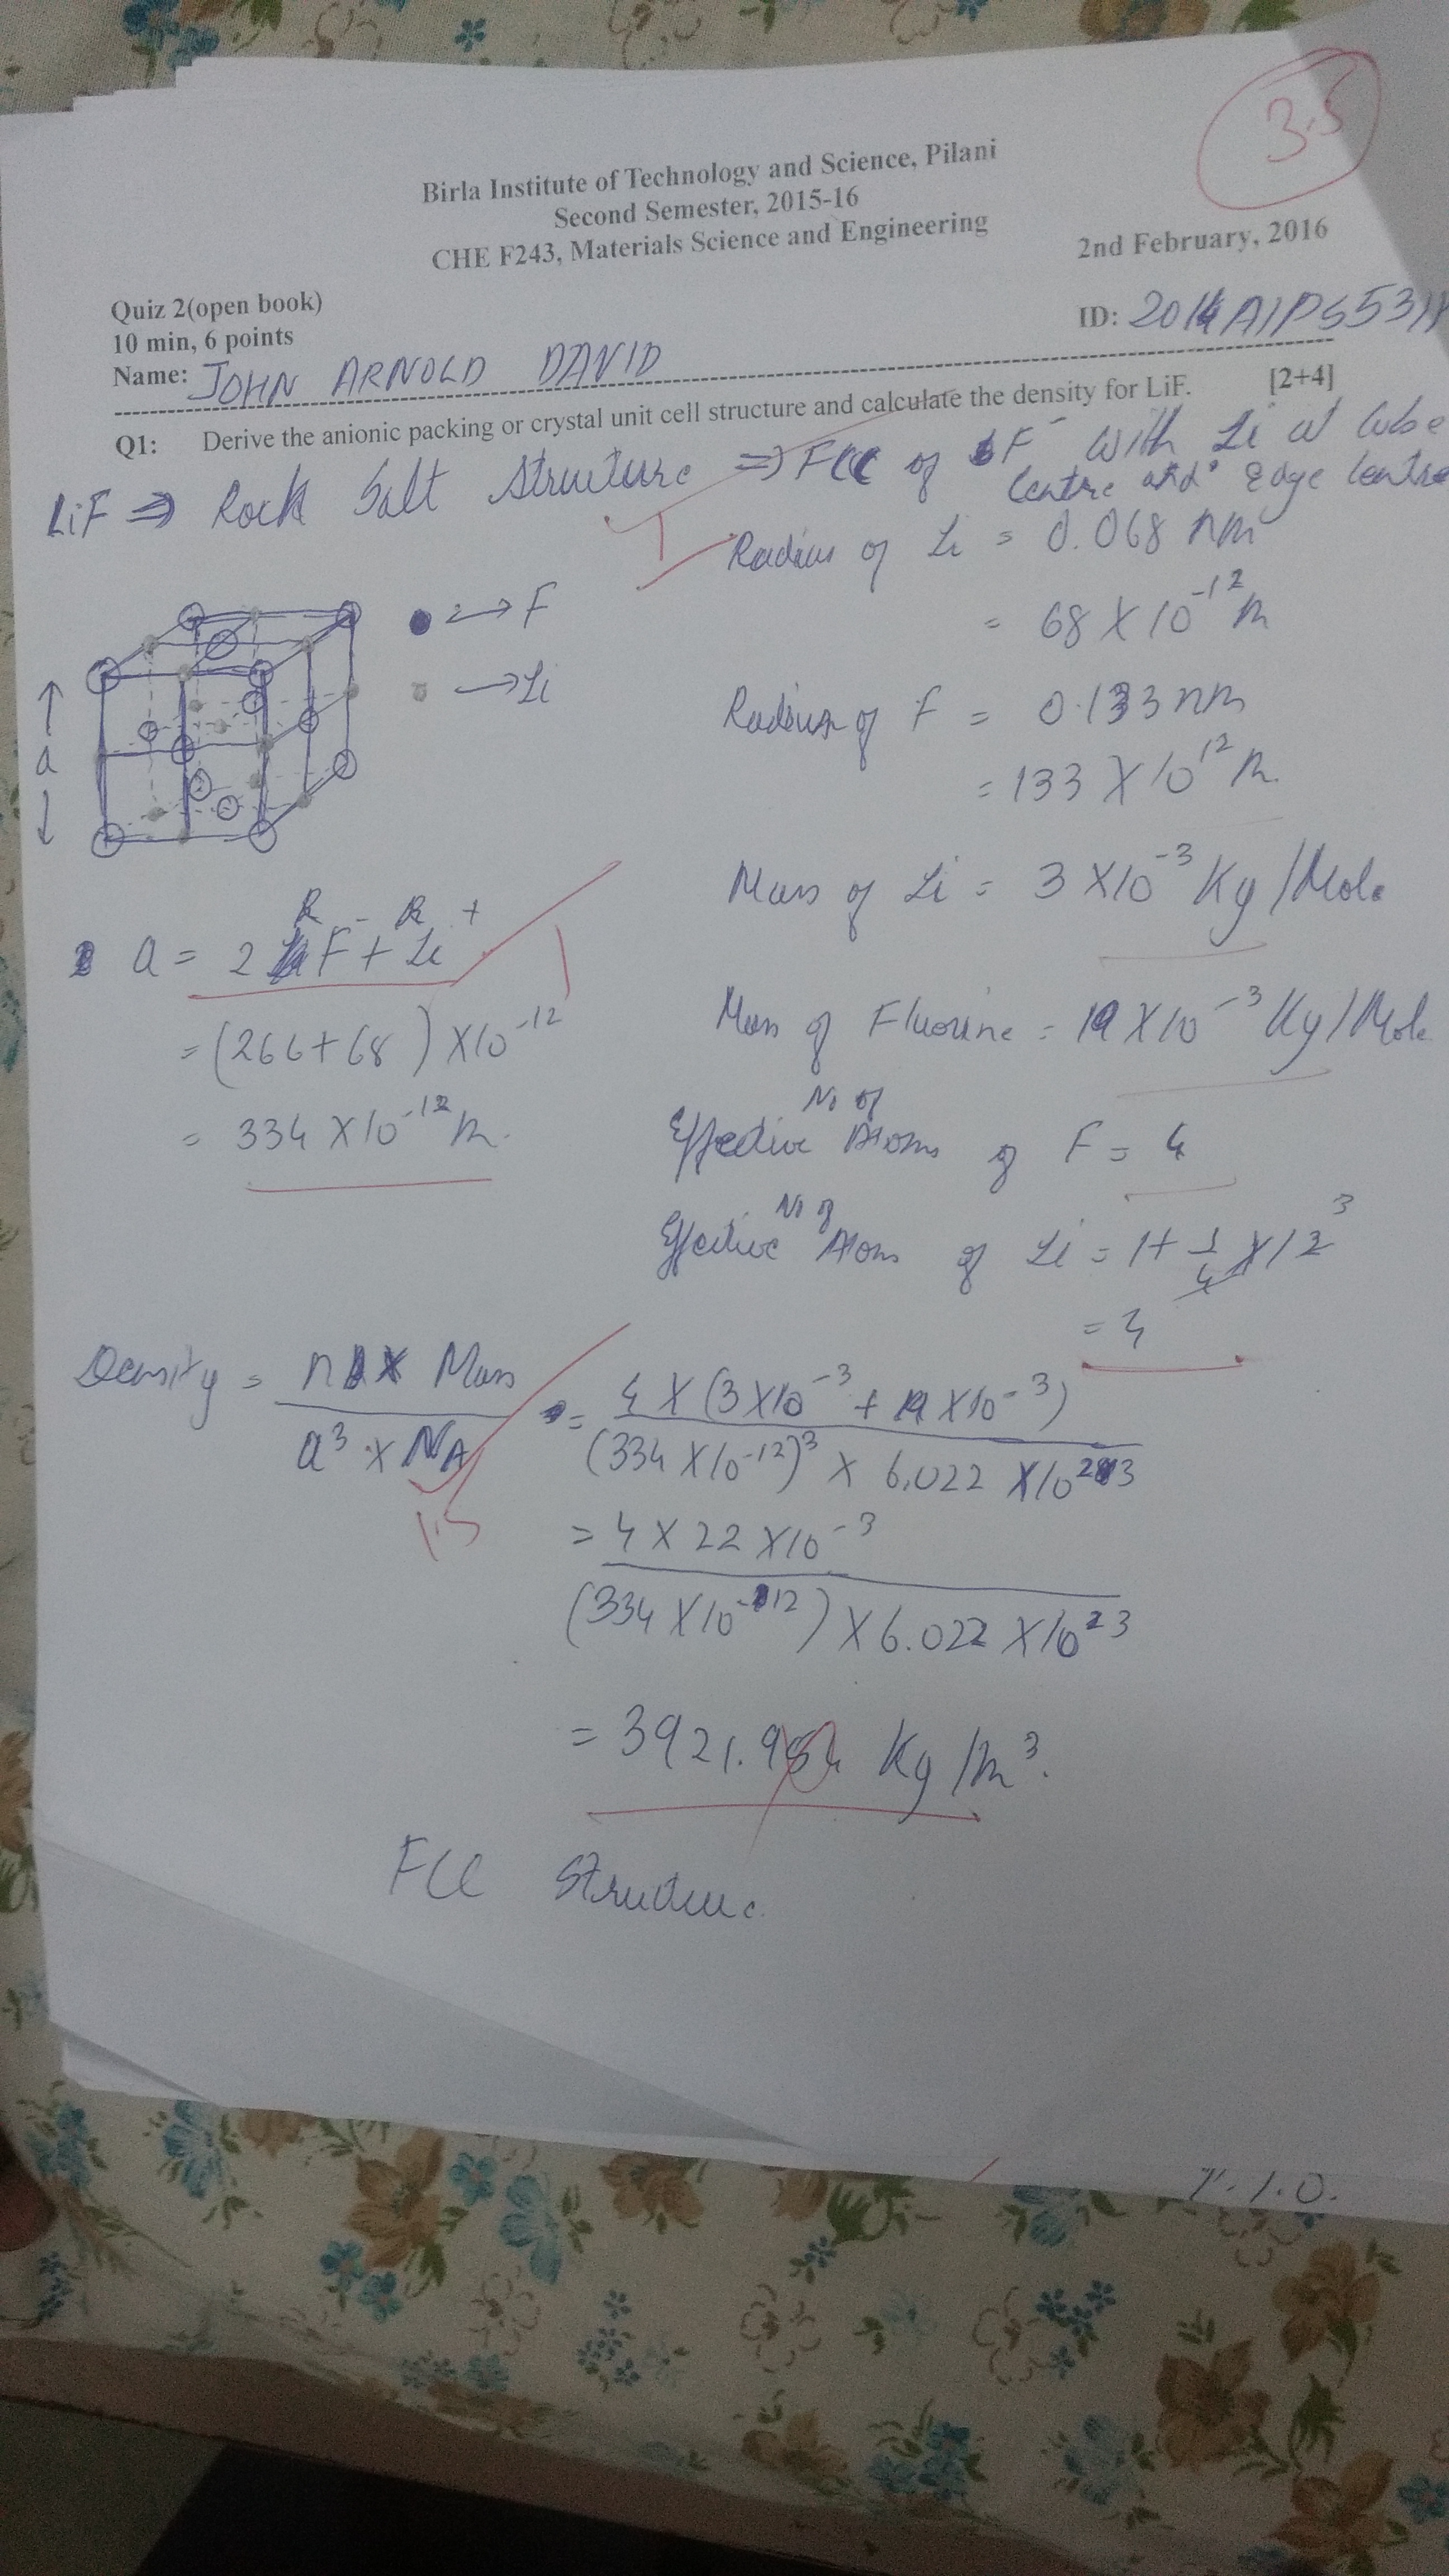 3.5
Birla Institute of Technology and Science, Pilani
Second Semester, 2015-16
CHE F243, Materials Science and Engineering
2nd February, 2016
Quiz 2(open book)
10 min, 6 points
ID:
Name: JOHN ARNOLD DAVID
Q1: Derive the anionic packing or crystal unit cell structure and calculate the density for LiF. [2+4]
LiF ⇒ Rock Salt Structure ⇒ FCC of F⁻ with Li at Cube
Centre and Edge Centre
1
Radius of Li = 0.068 nm
= 68 X 10⁻¹² m
→ F
→ Li
a
Radius of F = 0.133 nm
= 133 X 10¹² m.
Mass of Li = 3 X10⁻³ Kg/Mole
R⁻ R⁺
a = 2 F + Li
1
= (266+68) X10⁻¹²
= 334 X10⁻¹² m.
Mass of Fluorine = 19 X10⁻³ Kg/Mole
No of
Effective Atoms of F = 4
No of
Effective Atoms of Li = 1 + 1/4 X 12 3
= 4
Density = n X Mass / a³ x NA = 4 X (3 X10⁻³ + 19 X10⁻³) / (334 X10⁻¹²)³ X 6.022 X10²³
1.5
= 4 X 22 X10⁻³ / (334 X10⁻¹²) X 6.022 X10²³
= 3921.954 Kg/m³.
FCC Structure.
P.T.O.